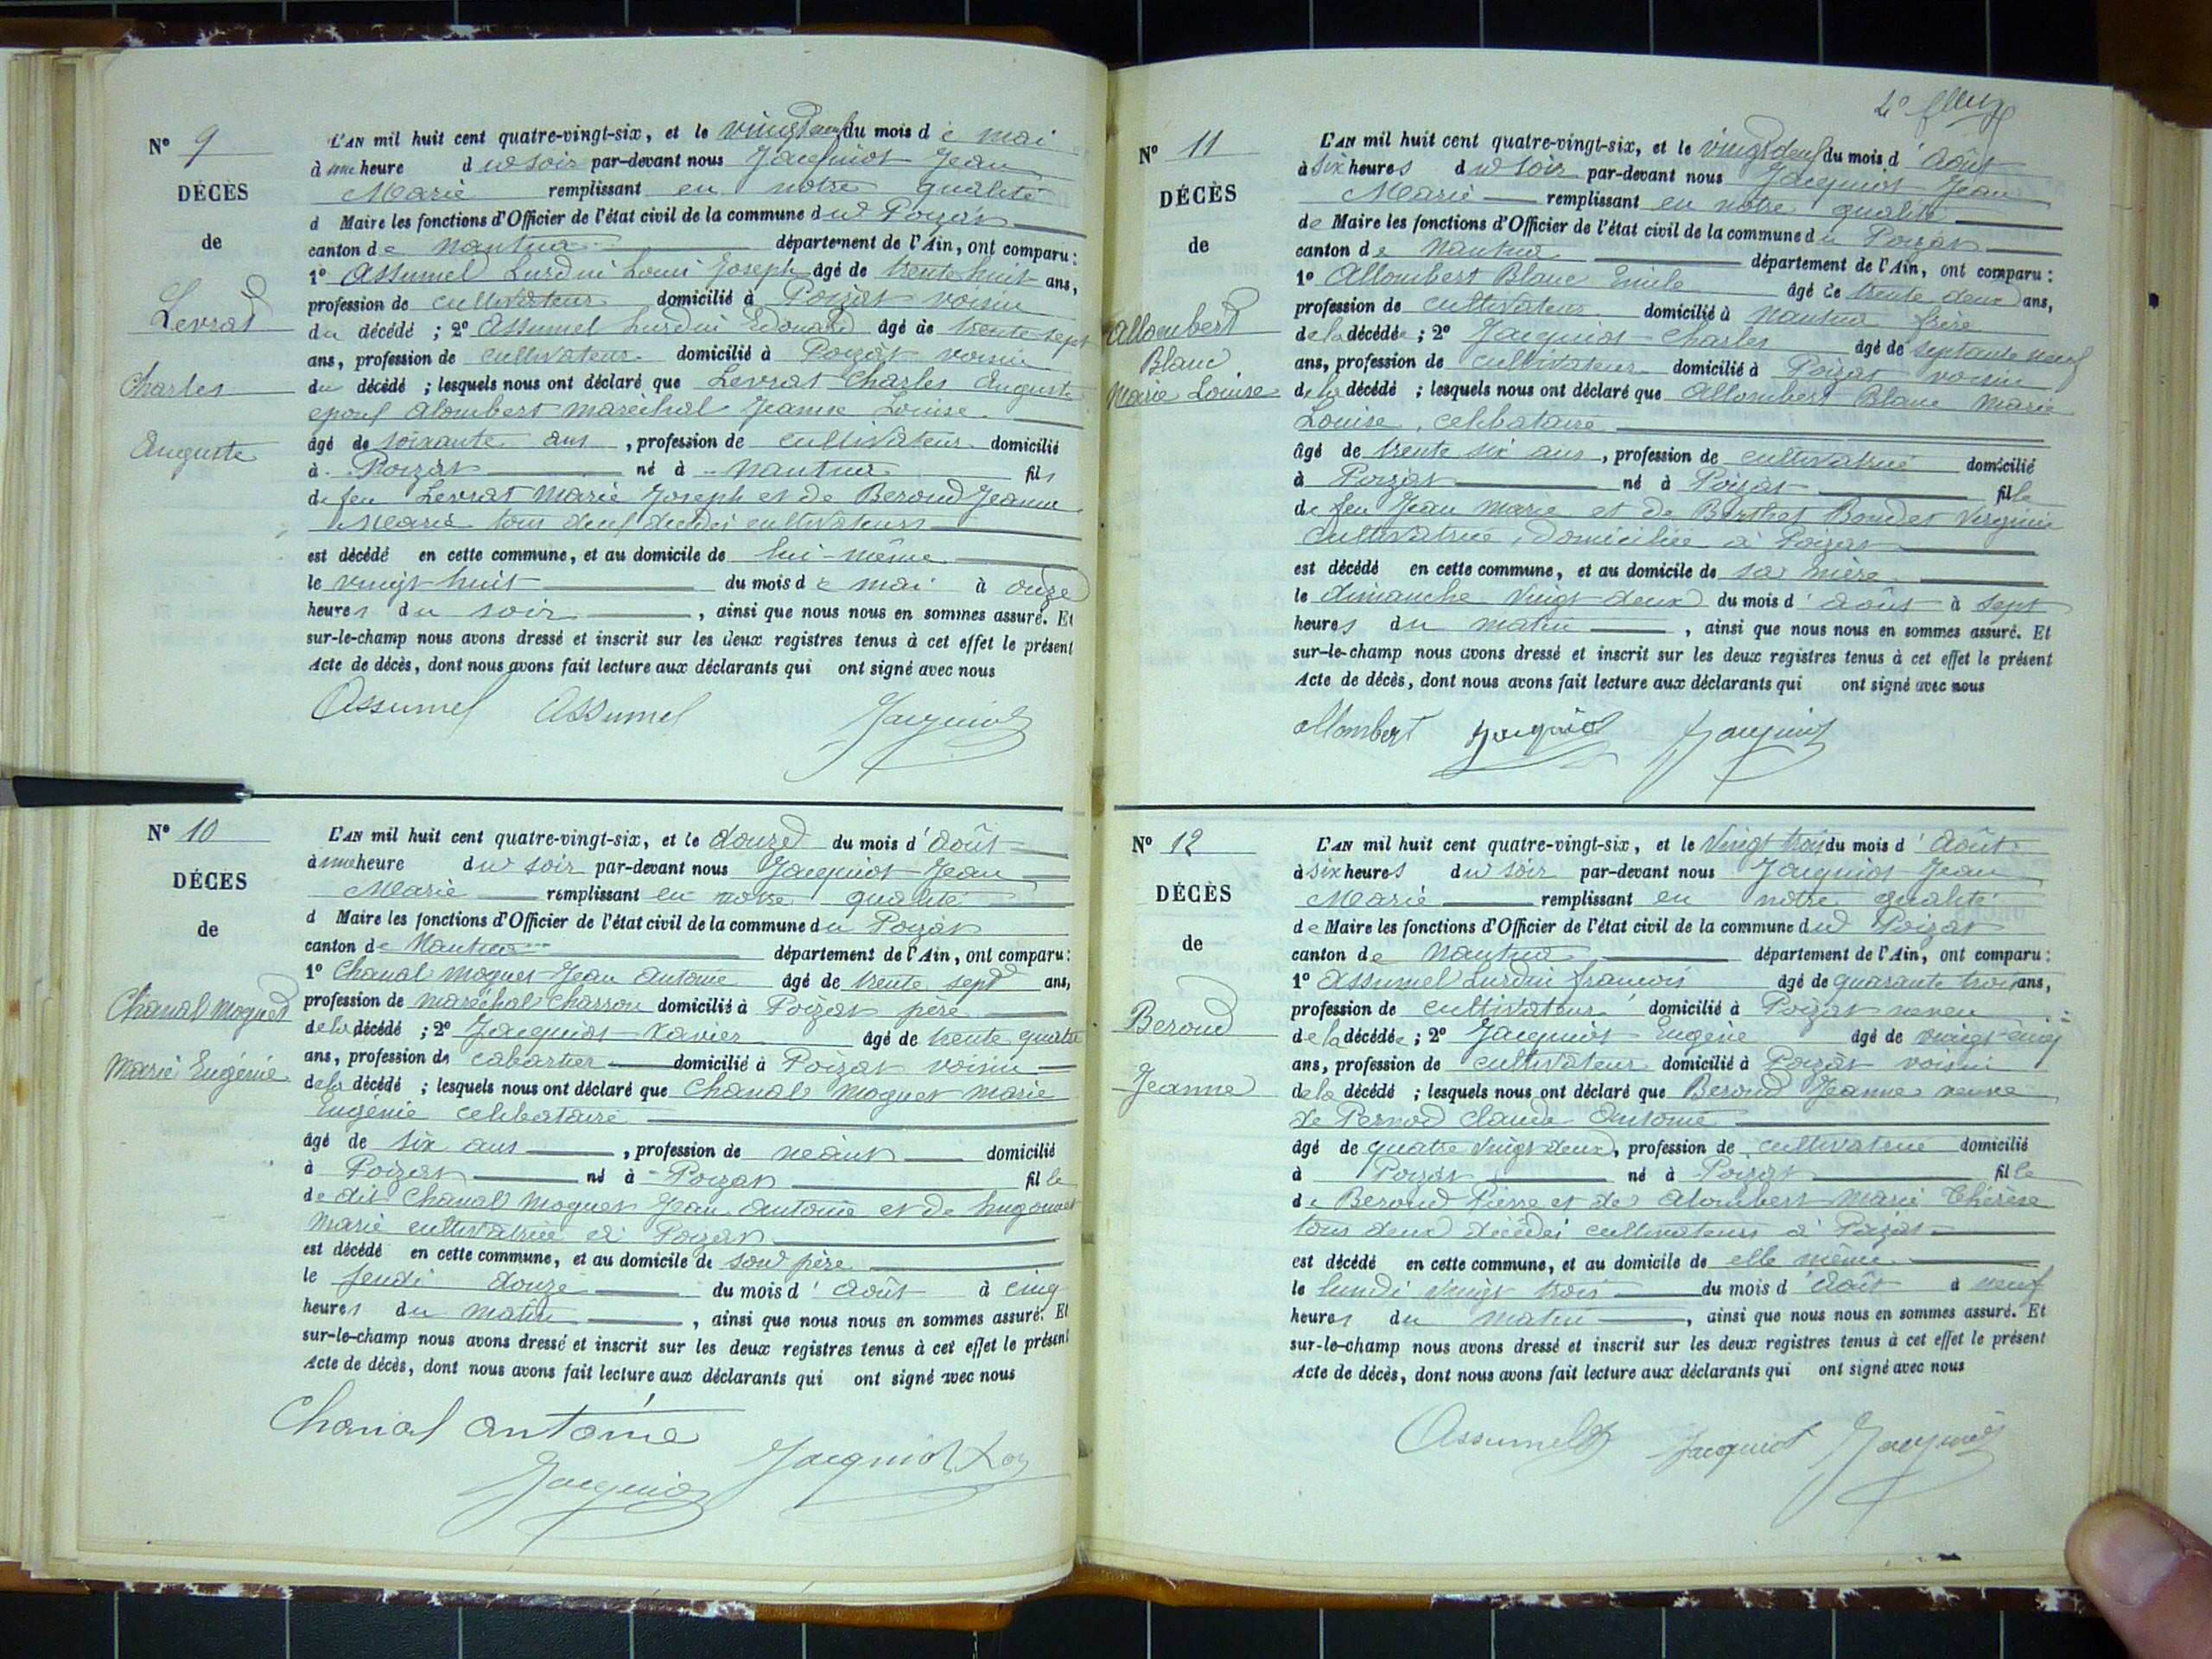 Nº 9
DÉCÈS
de
Levrat
Charles
Auguste
L'AN mil huit cent quatre-vingt-six, et le vingt neuf du mois de mai
à une heure du soir par-devant nous Jacquiot Jean
Marie remplissant en notre qualité
d Maire les fonctions d'Officier de l'état civil de la commune du Poizat
canton de Nantua département de l'Ain, ont comparu :
1º Assumel Lurdin Louis Joseph âgé de trente huit ans,
profession de cultivateur domicilié à Poizat voisin
du décédé ; 2º Assumel Lurdin Edouard âgé de trente sept
ans, profession de cultivateur domicilié à Poizat voisin
du décédé ; lesquels nous ont déclaré que Levrat Charles Auguste
epoux Alombert maréchal Jeanne Louise
âgé de soixante ans , profession de cultivateur domicilié
à Poizat né à Nantua fils
de feu Levrat Marie Joseph et de Beroud Jeanne
Marie tous deux décédés cultivateurs
est décédé en cette commune, et au domicile de lui-même
le vingt huit du mois de mai à onze
heures du soir , ainsi que nous nous en sommes assuré. Et
sur-le-champ nous avons dressé et inscrit sur les deux registres tenus à cet effet le présent
Acte de décès, dont nous avons fait lecture aux déclarants qui ont signé avec nous
Assumel Assumel Jacquiot
Nº 10
DÉCÈS
de
Chanal Moguet
Marie Eugénie
L'AN mil huit cent quatre-vingt-six, et le douze du mois d'août
à une heure du soir par-devant nous Jacquiot Jean
Marie remplissant en notre qualité
d Maire les fonctions d'Officier de l'état civil de la commune du Poizat
canton de Nantua département de l'Ain, ont comparu :
1º Chanal Moguet Jean Antoine âgé de trente sept ans,
profession de maréchal charron domicilié à Poizat père
de la décédé ; 2º Jacquiot Xavier âgé de trente quatre
ans, profession de cabartier domicilié à Poizat voisin
de la décédé ; lesquels nous ont déclaré que Chanal Moguet Marie
Eugénie celibataire
âgé de six ans , profession de néant domicilié
à Poizat né à Poizat fille
de dit Chanal Moguet Jean Antoine et de Hugonnet
Marie cultivatrice à Poizat
est décédé en cette commune, et au domicile de son père
le Jeudi douze du mois d'août à cinq
heures du matin , ainsi que nous nous en sommes assuré. Et
sur-le-champ nous avons dressé et inscrit sur les deux registres tenus à cet effet le présent
Acte de décès, dont nous avons fait lecture aux déclarants qui ont signé avec nous
Chanal Antoine
Jacquiot Jacquiot Xav
Nº 11
DÉCÈS
de
Allombert
Blanc
Marie Louise
L'AN mil huit cent quatre-vingt-six, et le vingt deux du mois d'Août
à six heures du soir par-devant nous Jacquiot Jean
Marie remplissant en notre qualité
de Maire les fonctions d'Officier de l'état civil de la commune du Poizat
canton de Nantua département de l'Ain, ont comparu :
1º Allombert Blanc Emile âgé de trente deux ans,
profession de cultivateur domicilié à Nantua frère
de la décédée ; 2º Jacquiot Charles âgé de septante neuf
ans, profession de cultivateur domicilié à Poizat voisin
de la décédé ; lesquels nous ont déclaré que Allombert Blanc Marie
Louise, celibataire
âgé de trente six ans , profession de cultivatrice domicilié
à Poizat né à Poizat fille
de feu Jean Marie et de Berthet Bondet Virginie
Cultivatrice, domiciliée à Poizat
est décédé en cette commune, et au domicile de sa mère
le dimanche vingt deux du mois d'août à sept
heures du matin , ainsi que nous nous en sommes assuré. Et
sur-le-champ nous avons dressé et inscrit sur les deux registres tenus à cet effet le présent
Acte de décès, dont nous avons fait lecture aux déclarants qui ont signé avec nous
allombert Jacquiot Jacquiot
Nº 12
DÉCÈS
de
Beroud
Jeanne
L'AN mil huit cent quatre-vingt-six, et le Vingt trois du mois d'Août
à six heures du soir par-devant nous Jacquiot Jean
Marie remplissant en notre qualité
de Maire les fonctions d'Officier de l'état civil de la commune du Poizat
canton de Nantua département de l'Ain, ont comparu :
1º Assumel Lurdin françois âgé de quarante trois ans,
profession de cultivateur domicilié à Poizat neveu
de la décédée ; 2º Jacquiot Eugène âgé de vingt cinq
ans, profession de cultivateur domicilié à Poizat voisin
de la décédé ; lesquels nous ont déclaré que Beroud Jeanne veuve
de Pernod Claude Antoine
âgé de quatre vingt deux, profession de cultivatrice domicilié
à Poizat né à Poizat fille
de Beroud Pierre et de Alombert Marie Thérèse
tous deux décédés cultivateurs à Poizat
est décédé en cette commune, et au domicile de elle même
le lundi vingt trois du mois d'Août à neuf
heures du matin , ainsi que nous nous en sommes assuré. Et
sur-le-champ nous avons dressé et inscrit sur les deux registres tenus à cet effet le présent
Acte de décès, dont nous avons fait lecture aux déclarants qui ont signé avec nous
Assumel Jacquiot Jacquiot